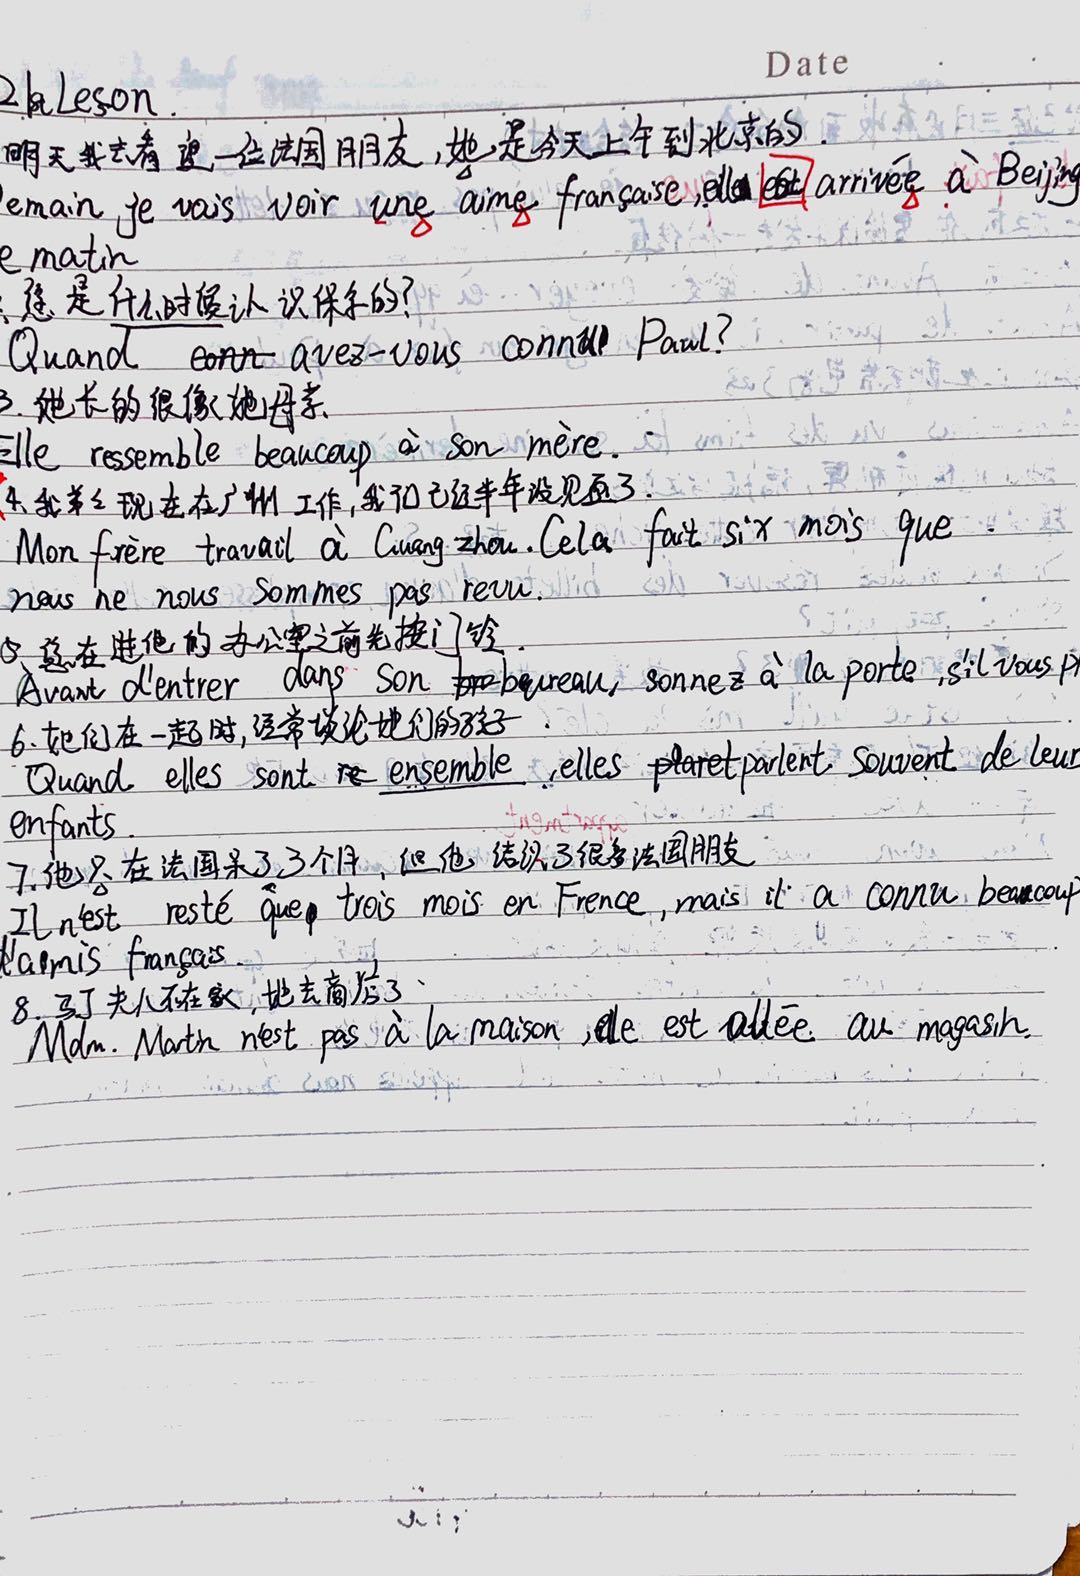 Date
la Leson.
明天我去看望一位法国朋友,她是今天上午到北京的.
emain, je vais voir une aime française, elle est arrivée à Beijing
e matin
您是什么时候认识保尔的?
Quand conn avez-vous connu Paul?
3. 她长的很像她母亲.
Elle ressemble beaucoup à son mère.
4. 我弟弟现在在广州工作,我们已近半年没见面了.
Mon frère travail à Guangzhou. Cela fait six mois que
nous ne nous sommes pas revu.
5. 您在进他的办公室之前先按门铃.
Avant d'entrer dans son bureau, sonnez à la porte, s'il vous pl
6. 她们在一起时,经常谈论她们的孩子.
Quand elles sont re ensemble, elles plaret parlent souvent de leur
enfants.
apartment
7. 他只在法国呆了3个月, 但他结识了很多法国朋友
Il n'est resté que trois mois en Frence, mais il a connu beaucoup
d'amis français.
8. 马丁夫人不在家, 她去商店了.
Mdm. Martin n'est pas à la maison, elle est allée au magasin.